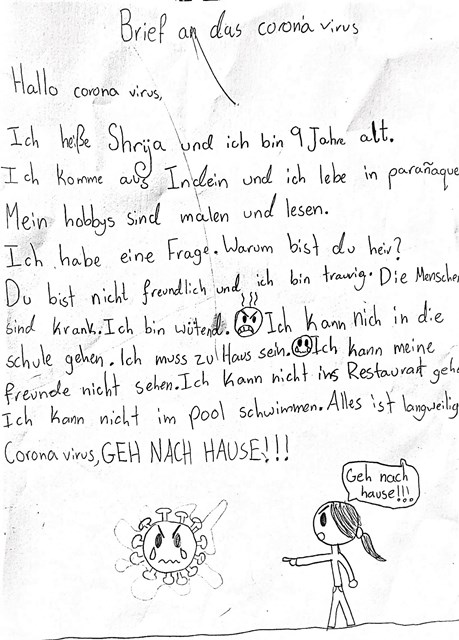 Brief an das corona virus
Hallo corona virus,
Ich heiße Shrija und ich bin 9 Jahre alt.
Ich komme aus Indein und ich lebe in parañaque
Mein hobbys sind malen und lesen.
Ich habe eine Frage. Warum bist du heir?
Du bist nicht freundlich und ich bin traurig. Die Menschen
sind krank. Ich bin wütend. Ich kann nich in die
schule gehen. Ich muss zu Haus sein. Ich kann meine
freunde nicht sehen. Ich kann nicht ins Restaurant gehe
Ich kann nicht im pool schwimmen. Alles ist langweilig
Corona virus, GEH NACH HAUSE!!!
Geh nach
hause!!!